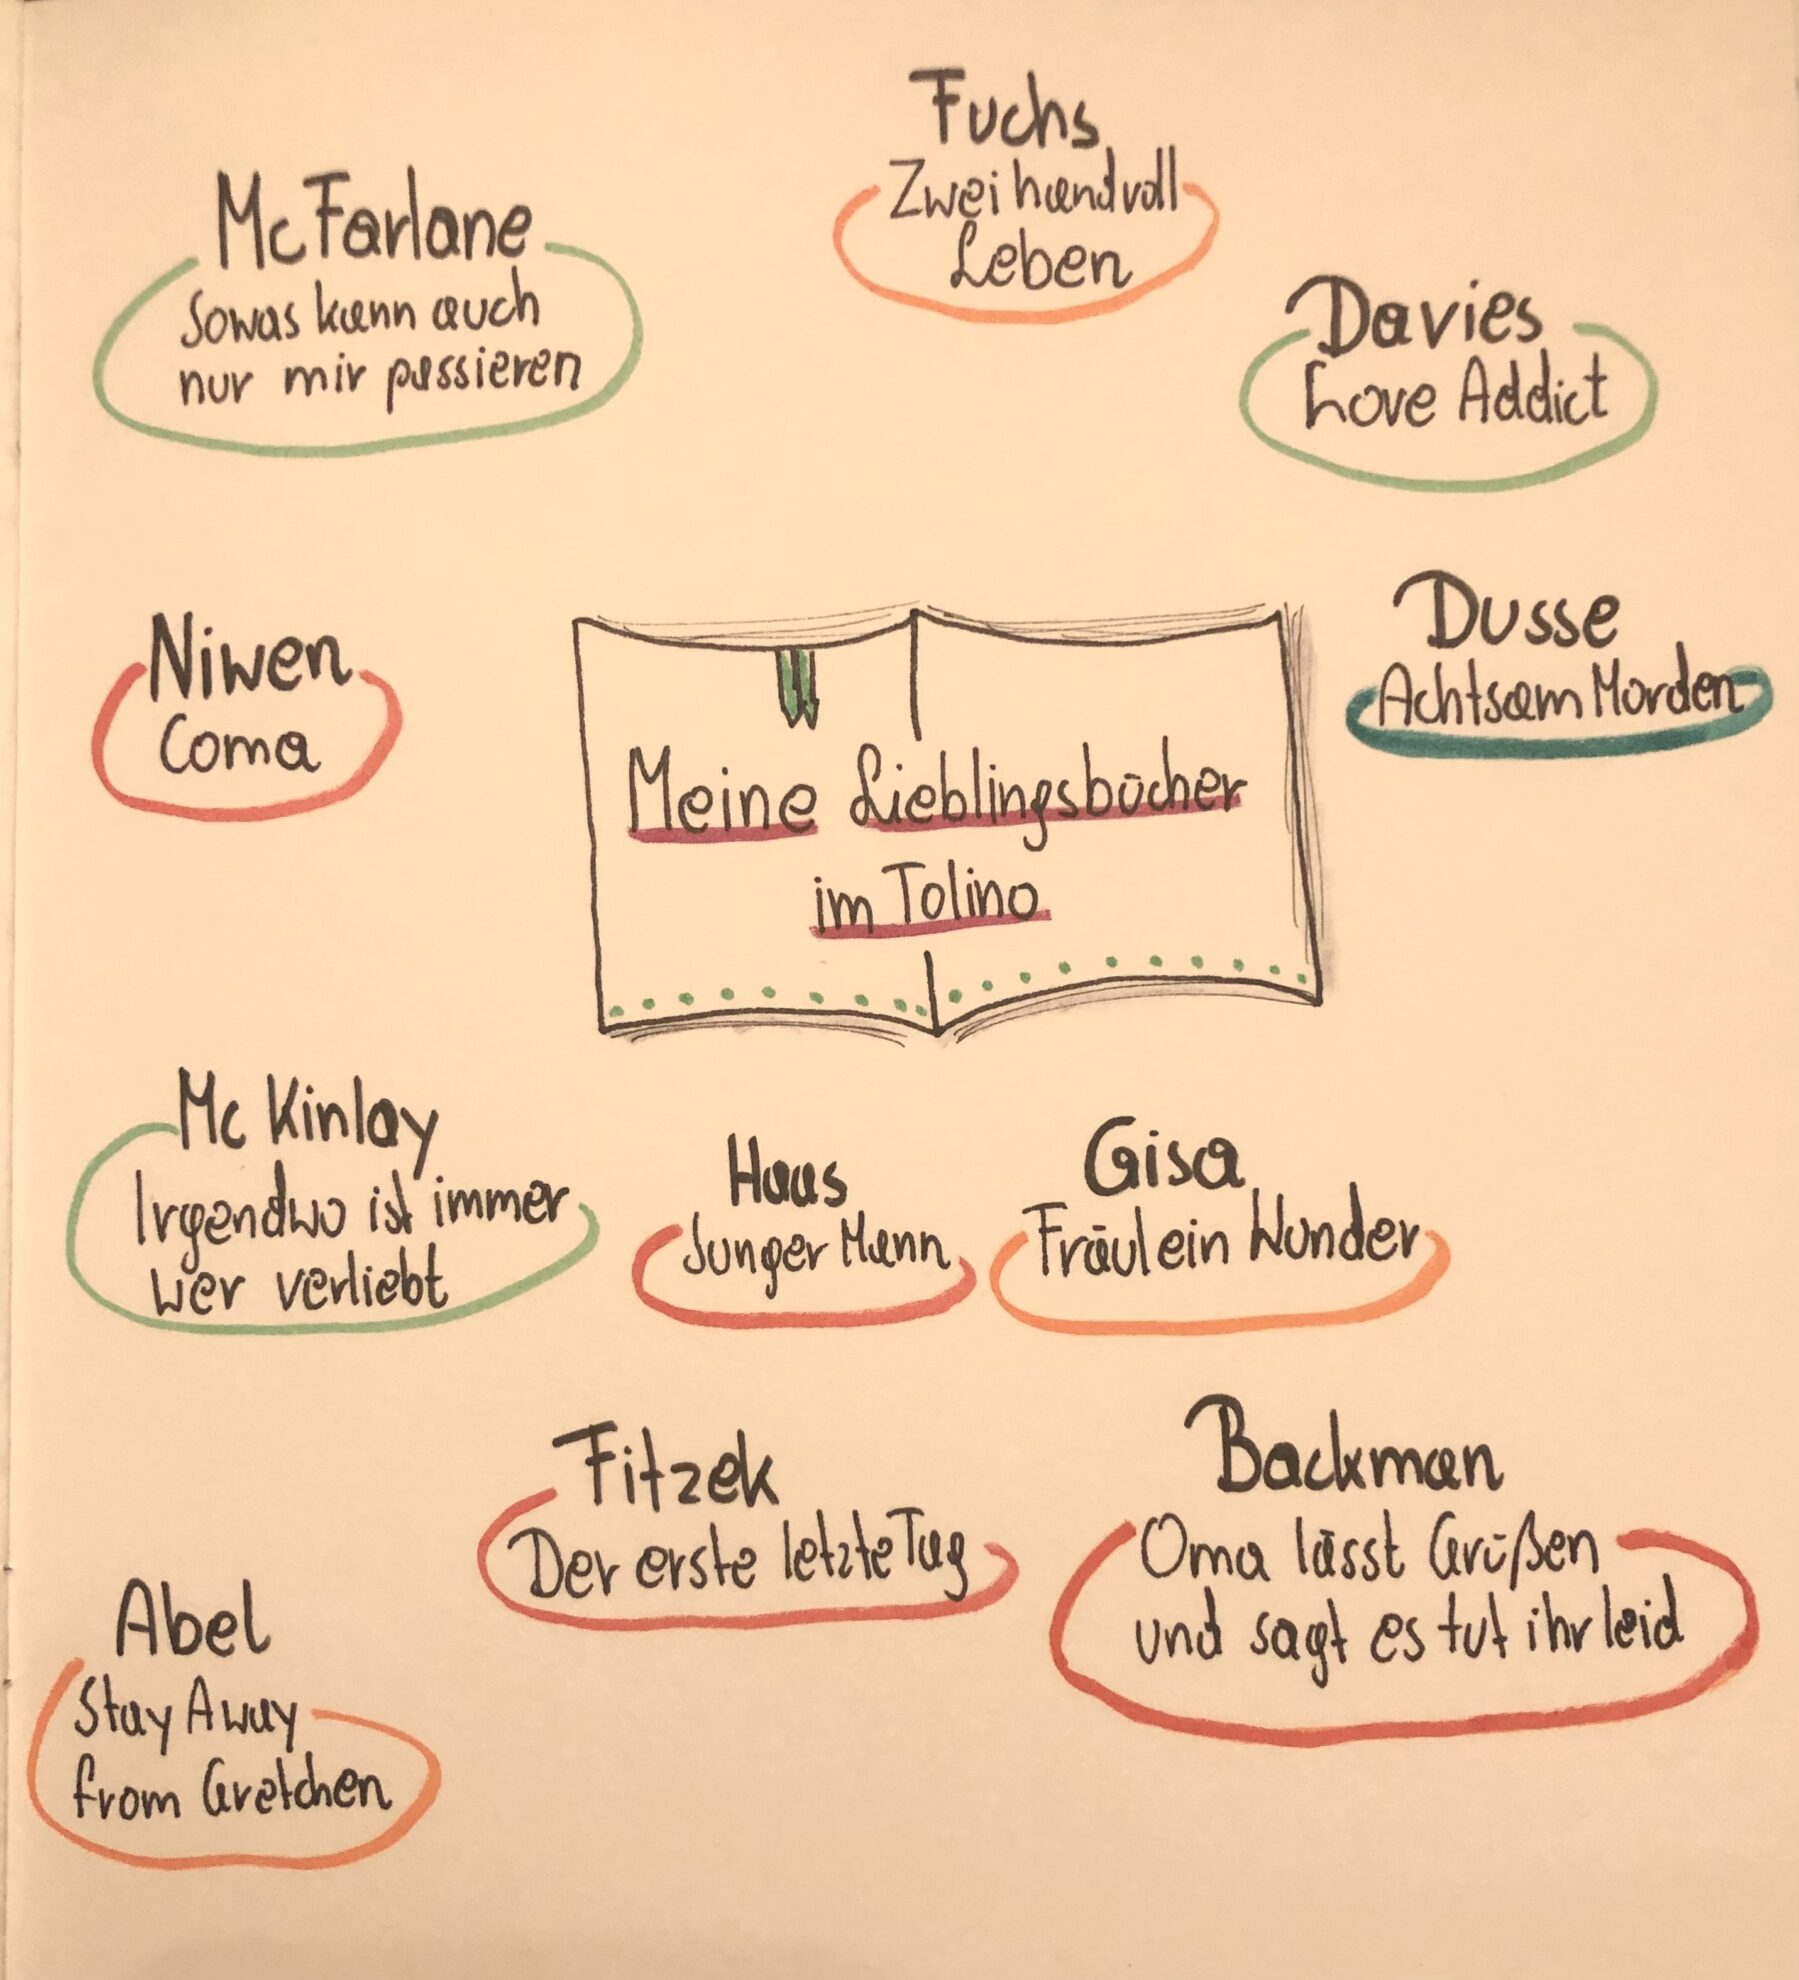 Fuchs
Zwei handvoll
Leben
McFarlane
Sowas kann auch
nur mir passieren
Davies
Love Addict
Dusse
Achtsam Morden
Niwen
Coma
Meine Lieblingsbücher
im Tolino
Mc Kinlay
Irgendwo ist immer
wer verliebt
Haas
Junger Mann
Gisa
Fräulein Wunder
Fitzek
Der erste letzte Tag
Backman
Oma lässt Grüßen
und sagt es tut ihr leid
Abel
Stay Away
from Gretchen